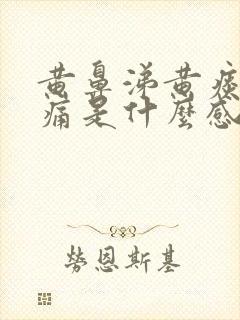 黄鼻涕黄痰
痛是什麼感
勞恩斯基